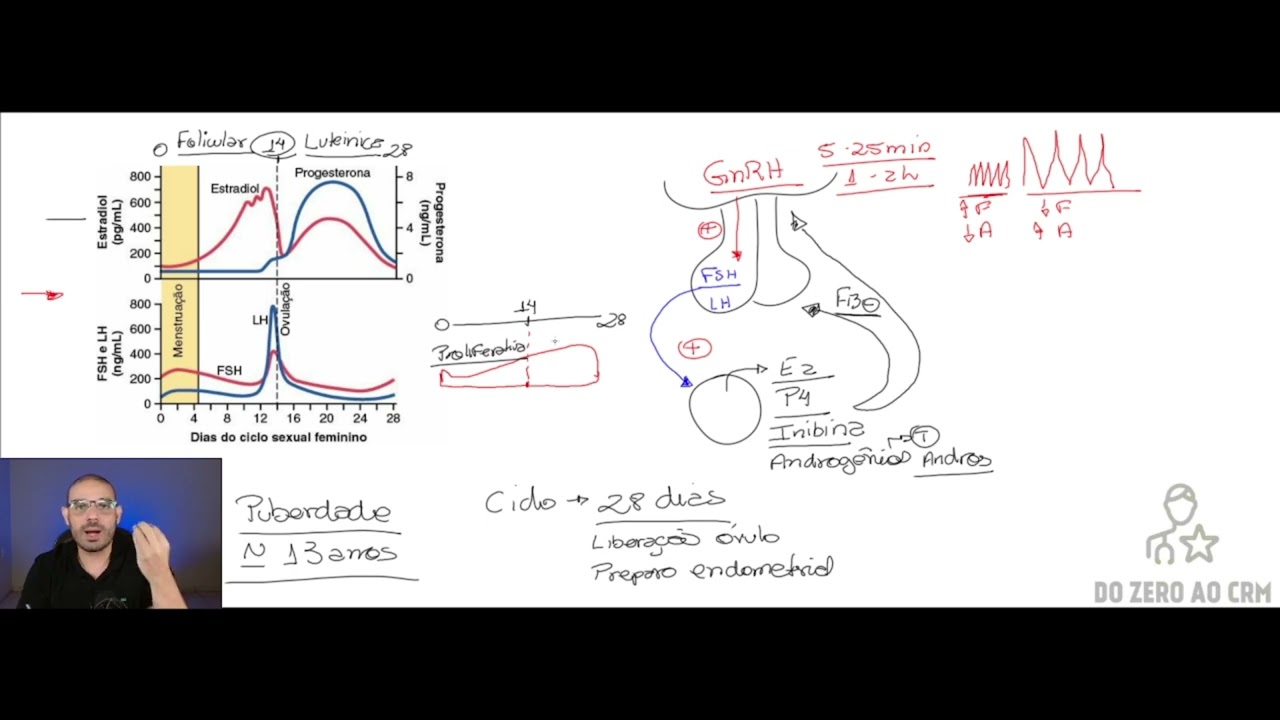 0 Folicular 14 Luteínica 28
800
600
400
200
0
Estradiol
(pg/mL)
Estradiol
Progesterona
8
4
0
Progesterona
(ng/mL)
800
600
400
200
0
FSH e LH
(ng/mL)
Menstruação
FSH
LH
Ovulação
0 4 8 12 16 20 24 28
Dias do ciclo sexual feminino
0 14 28
Proliferativa
GnRH
5-25min
1-2h
↑F
↓A
↓F
↑A
+
FSH
LH
+
FB⊖
E2
P4
Inibina
Androgênios → T
Andros
Puberdade
N 13 anos
Ciclo → 28 dias
Liberação óvulo
Preparo endometrial
DO ZERO AO CRM